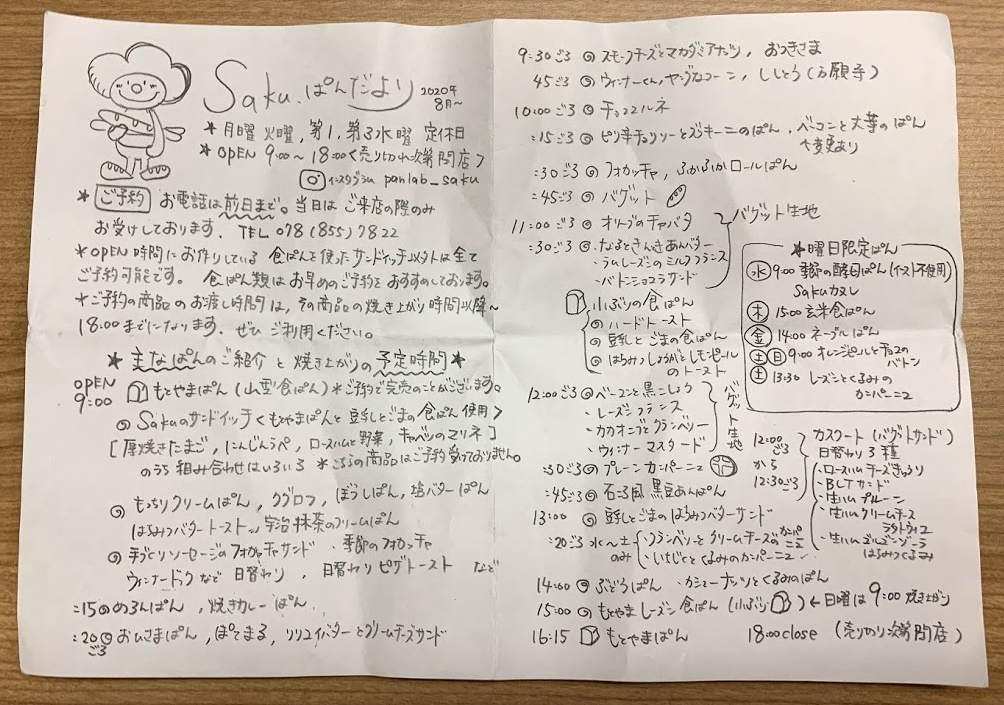 Saku.ぱんだより 2020年 8月~
★月曜 火曜, 第1, 第3水曜 定休日
★OPEN 9:00~18:00<売り切れ次第閉店>
インスタグラム panlab_saku
★ご予約 お電話は前日まで。当日はご来店の際のみ
お受けしております. TEL 078(855)7822
*OPEN時間にお作りしている 食ぱんを使ったサンドイッチ以外は全て
ご予約可能です。 食ぱん類はお早めのご予約をおすすめしております。
*ご予約の商品のお渡し時間は, その商品の焼き上がり時間以降~
18:00までになります. ぜひご利用ください。
★主なぱんのご紹介と焼き上がりの予定時間★
OPEN
9:00 もとやまぱん(山型食ぱん)*ご予約で完売のことがございます。
Sakuのサンドイッチ<もとやまぱんと豆乳とごまの食ぱん使用>
[厚焼きたまご, にんじんらぺ, ロースハムと野菜, キャベツのマリネ]
のうち組み合わせはいろいろ *こちらの商品はご予約受けておりません。
もっちりクリームぱん, クグロフ, ぼうしぱん, 塩バターぱん
はちみつバタートースト, 宇治抹茶のクリームぱん
手づくりソーセージのフォカッチャサンド・季節のフォカッチャ
ウィンナードックなど日替わり, 日替わりピザトースト など
:15 めろんぱん, 焼きカレーぱん
:20ごろ おひさまぱん, ぽてまる, リリコイバターとクリームチーズサンド
9:30ごろ スモークチーズとマカダミアナッツ, おつきさま
45ごろ ウィンナーくん, ヤングコーン, ししとう(万願寺)
10:00ごろ チョココルネ
:15ごろ ピリ辛チョリソーとズッキーニのぱん, ベーコンと大葉のぱん
変更あり
:30ごろ フォカッチャ, ふかふかロールぱん
:45ごろ バゲット
11:00ごろ オリーブのチャバタ
:30ごろ なるときんときあんバター
・ラムレーズンのミルクフランス
・バトンショコラサンド
バゲット生地
小ぶりの食ぱん
ハードトースト
豆乳とごまの食ぱん
はちみつしょうがとレモンピール
のトースト
12:00ごろ ベーコンと黒こしょう
・レーズンフランス
・カカオニブとクランベリー
・ウィンナーマスタード
バゲット生地
:30ごろ プレーンカンパーニュ
:45ごろ 石ころ風 黒豆あんぱん
13:00 豆乳とごまのはちみつバターサンド
:20ごろ 水~土のみ
・クランベリーとクリームチーズのカンパーニュ
・いちじくとくるみのカンパーニュ
14:00 ぶどうぱん ・カシューナッツとくるみのぱん
15:00 もとやまレーズン食ぱん(小ぶり)←日曜は9:00焼き上がり
16:15 もとやまぱん 18:00close(売り切れ次第閉店)
★曜日限定ぱん
水 9:00 季節の酵母ぱん(イースト不使用)
Sakuカヌレ
木 15:00 玄米食ぱん
金 14:00 ネーブルぱん
土日 9:00 オレンジピールとチョコの
バトン
土 13:30 レーズンとくるみの
カンパーニュ
12:00ごろから12:30ごろ
カスクート(バゲットサンド)
日替わり3種
・ロースハムチーズきゅうり
・BLTサンド
・生ハムプルーン
・生ハムクリームチーズ
ラタトゥイユ
・生ハムゴルゴンゾーラ
はちみつくるみ